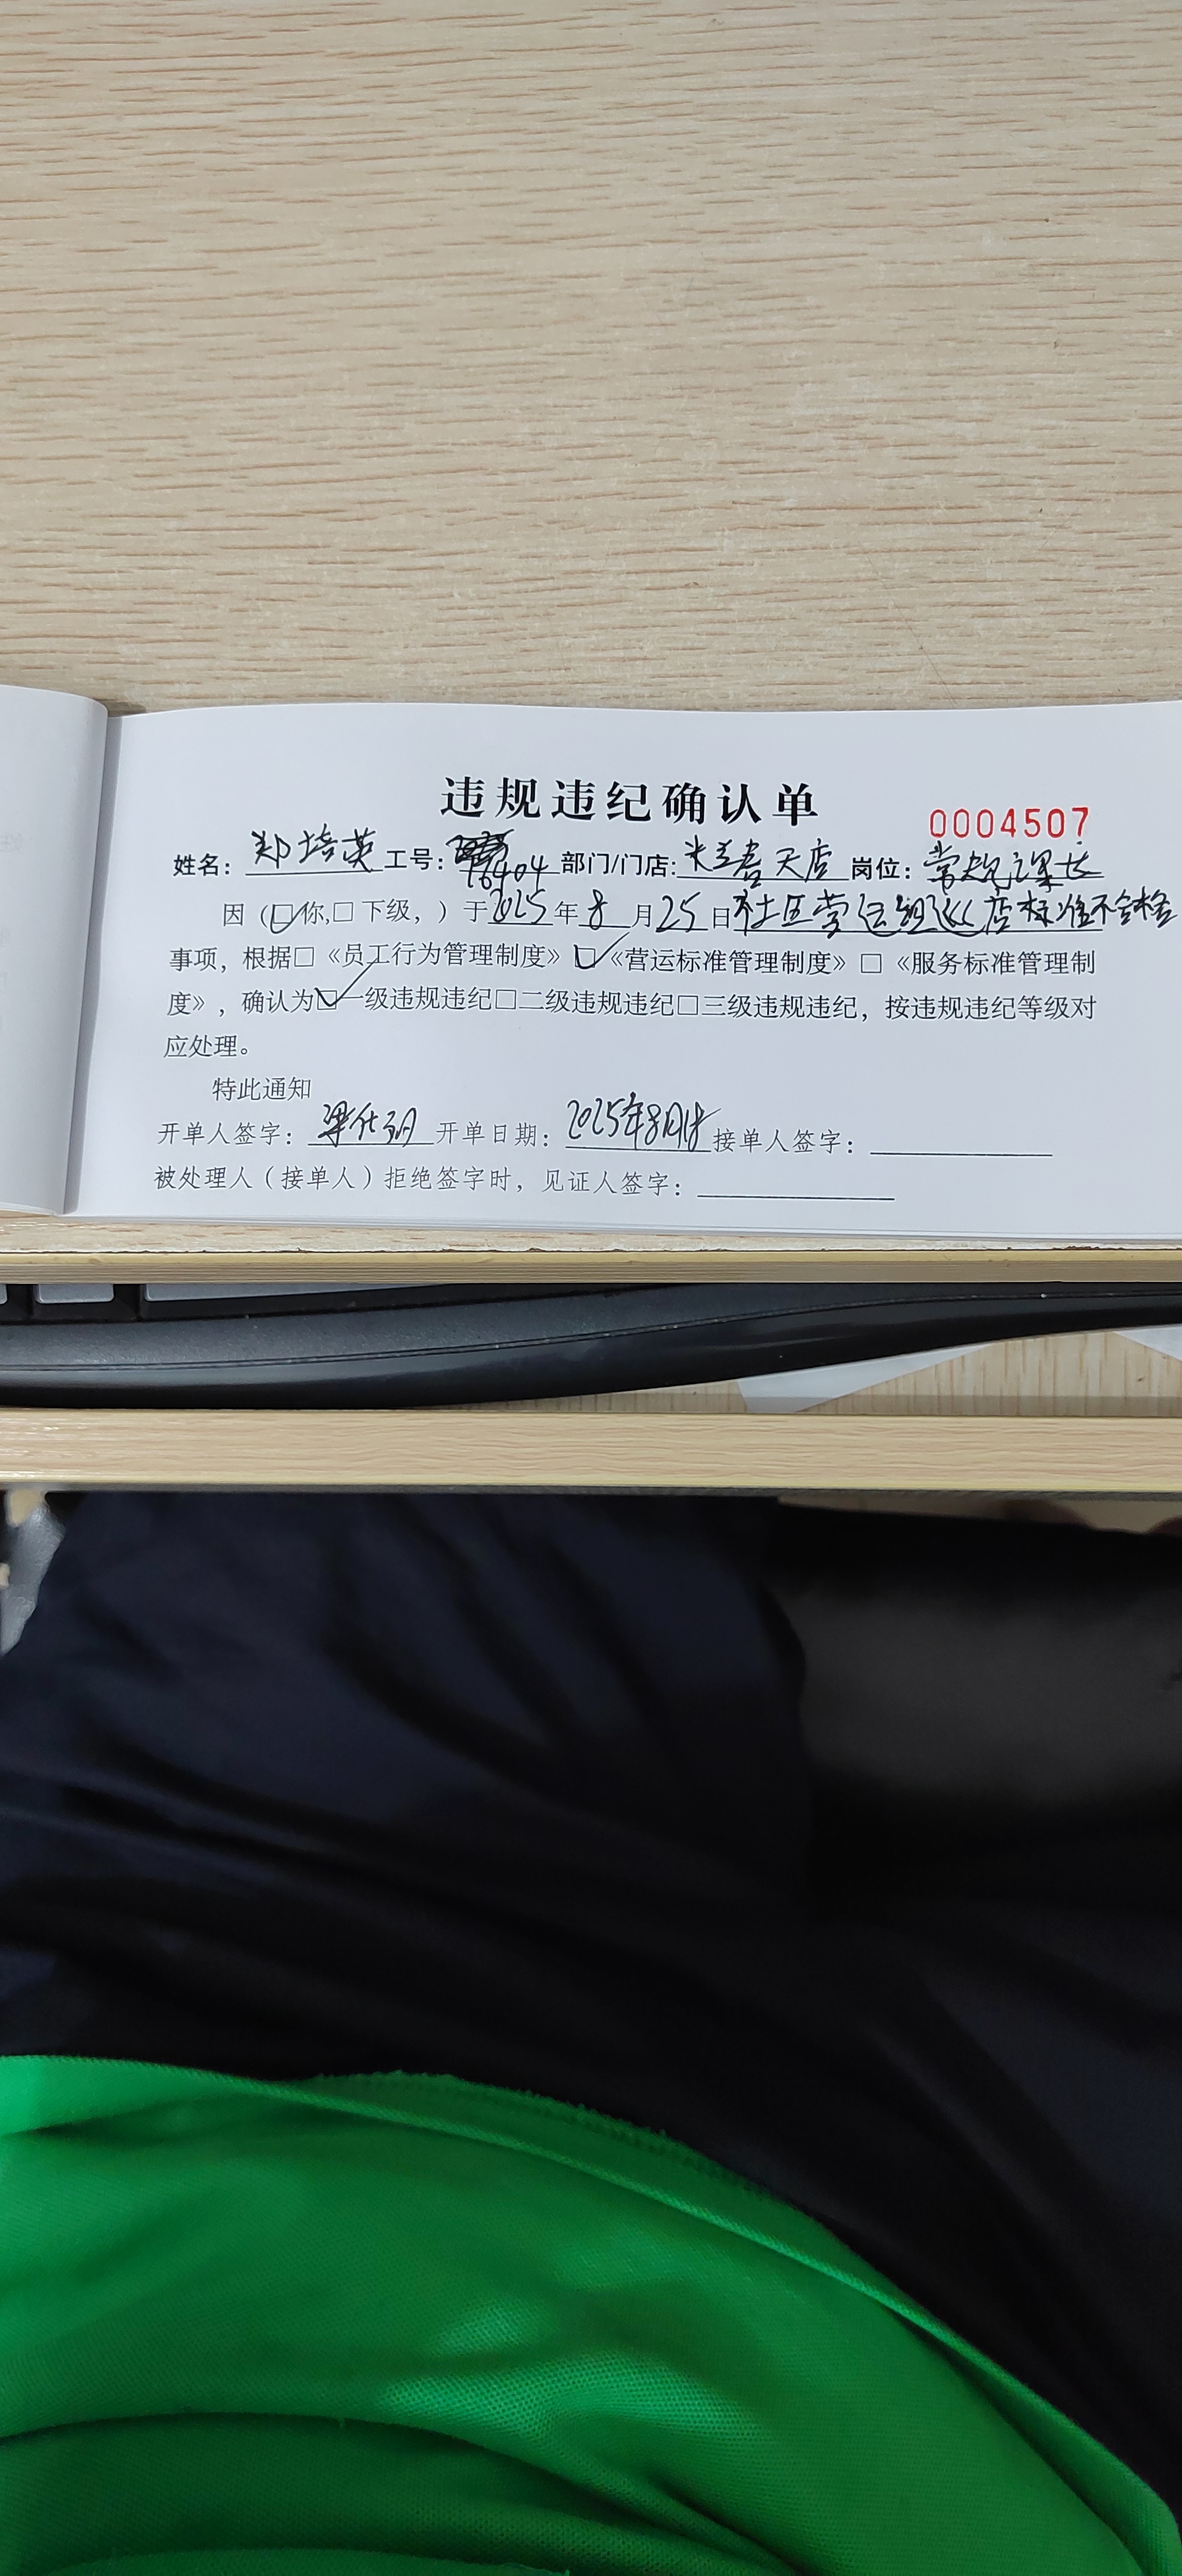 违规违纪确认单
0004507
姓名：郑培英 工号：16404 部门/门店：春天店 岗位：常规课长
因（☑你，□下级，）于2025年8月25日社区营运组巡店标准不合格
事项，根据□《员工行为管理制度》☑《营运标准管理制度》□《服务标准管理制
度》，确认为☑一级违规违纪□二级违规违纪□三级违规违纪，按违规违纪等级对
应处理。
特此通知
开单人签字：梁 开单日期：2025年8月 接单人签字：
被处理人（接单人）拒绝签字时，见证人签字：